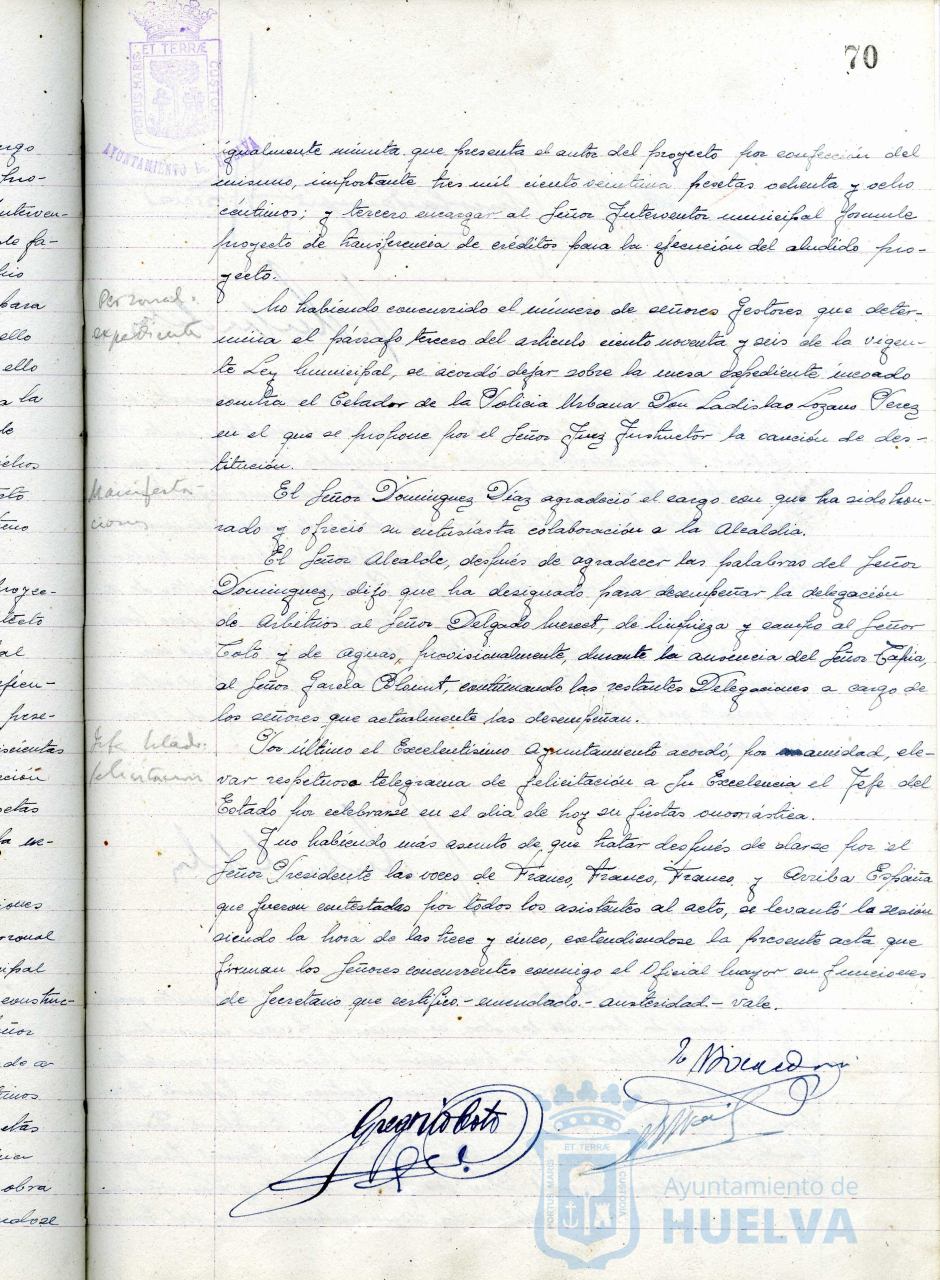 70
ET TERRÆ
PORTUS MARIS
CUSTOD
AYUNTAMIENTO DE HUELVA
igualmente minuta que presenta el autor del proyecto por confección del
mismo, importante tres mil ciento veintiuna pesetas ochenta y ocho
céntimos; y tercero encargar al Señor Interventor municipal formule
proyecto de transferencia de créditos para la ejecución del aludido pro-
yecto.
Personal.
expediente
No habiendo concurrido el número de señores Gestores que deter-
mina el párrafo tercero del artículo ciento noventa y seis de la vigen-
te Ley Municipal, se acordó dejar sobre la mesa expediente incoado
contra el Celador de la Policia Urbana Don Ladislao Lozano Perez
en el que se propone por el Señor Juez Instructor la canción de des-
titución.
Manifesta-
ciones
El Señor Dominguez Diaz agradeció el cargo con que ha sido hon-
rado y ofreció su entusiasta colaboración a la Alcaldia.
El Señor Alcalde, después de agradecer las palabras del Señor
Dominguez, dijo que ha designado para desempeñar la delegación
de Arbitrios al Señor Delgado, de limpieza y campo al Señor
Coto y de aguas, provisionalmente, durante la ausencia del Señor Tapia,
al Señor García, continuando las restantes Delegaciones a cargo de
los señores que actualmente las desempeñan.
Jefe Estado.
felicitación
Por último el Excelentísimo Ayuntamiento acordó, por unanimidad, ele-
var respetuoso telegrama de felicitación a Su Excelencia el Jefe del
Estado por celebrarse en el día de hoy su fiestas onomástica.
Y no habiendo más asunto de que tratar después de darse por el
Señor Presidente las voces de Franco, Franco, Franco, y Arriba España
que fueron contestadas por todos los asistentes al acto, se levantó la sesión
siendo la hora de las trece y cinco, extendiendose la presente acta que
firman los Señores concurrentes conmigo el Oficial Mayor en funciones
de Secretario que certifico.- enmendado.- austeridad - vale.
Gregorio Coto
ET TERRÆ
PORTUS MARIS
CUSTODIA
Ayuntamiento de
HUELVA